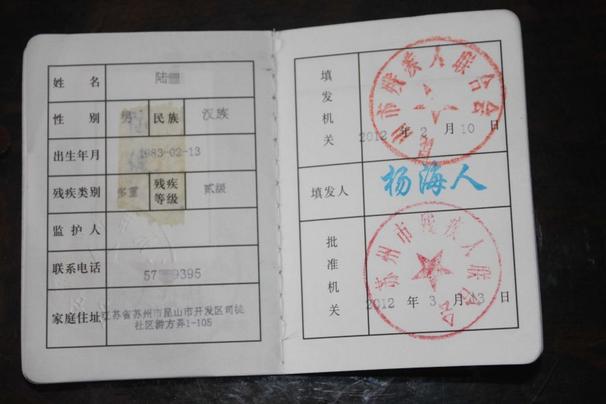 姓 名 陆
性 别 男 民族 汉族
出生年月 1983-02-13
残疾类别 多重 残疾等级 贰级
监护人
联系电话 57 9395
家庭住址 江苏省苏州市昆山市开发区司徒
社区游方弄1-105
填发机关
市残疾人联合会
2012 年 2 月 10 日
填发人 杨海人
批准机关
苏州市残疾人联合会
2012 年 3 月 13 日